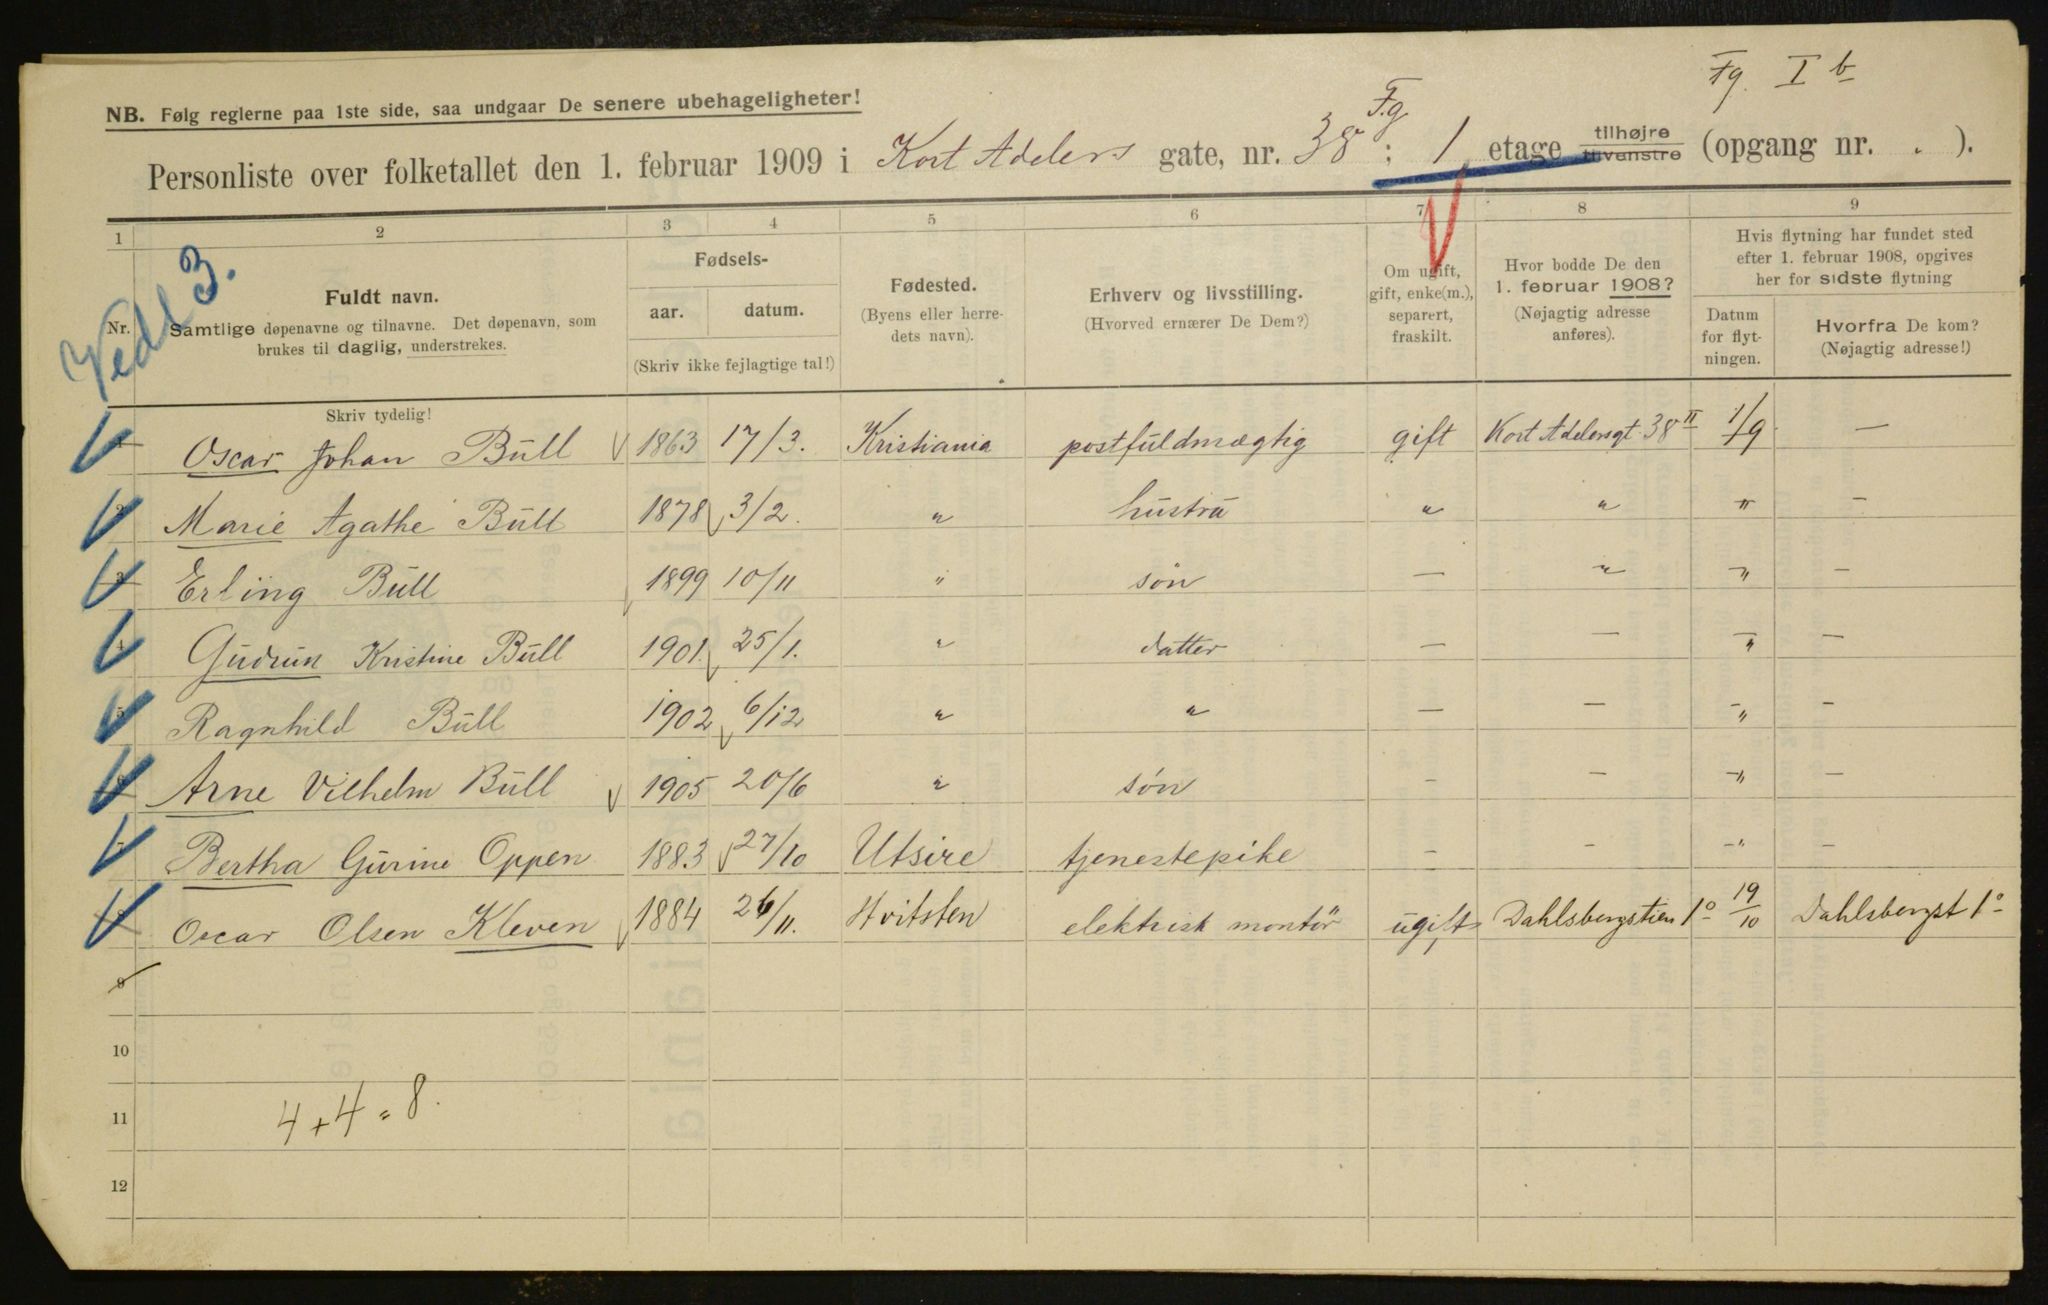 Fg. I b
NB. Følg reglerne paa 1ste side, saa undgaar De senere ubehageligheter!
Fg
Personliste over folketallet den 1. februar 1909 i Kort Adelers gate, nr. 38; 1 etage tilhøjre tilvenstre (opgang nr. . ).
1 2 3 4 5 6 7 8 9
Vedl 3.
Nr.
Fuldt navn.
Samtlige døpenavne og tilnavne. Det døpenavn, som
brukes til daglig, understrekes.
Skriv tydelig!
Fødsels-
aar. datum.
(Skriv ikke fejlagtige tal!)
Fødested.
(Byens eller herre-
dets navn).
Erhverv og livsstilling.
(Hvorved ernærer De Dem?)
Om ugift,
gift, enke(m.),
separert,
fraskilt.
Hvor bodde De den
1. februar 1908?
(Nøjagtig adresse
anføres).
Hvis flytning har fundet sted
efter 1. februar 1908, opgives
her for sidste flytning
Datum
for flyt-
ningen.
Hvorfra De kom?
(Nøjagtig adresse!)
1 Oscar Johan Büll 1863 17/3. Kristiania postfuldmægtig gift Kort Adelersgt 38 II 1/9 —
2 Marie Agathe Büll 1878 3/2. " hustru " " " —
3 Erling Büll 1899 10/11 " søn — " " —
4 Gudrun Kristine Büll 1901. 25/1. " datter — — " —
5 Ragnhild Büll 1902 6/12 " " — — " —
6 Arne Vilhelm Büll 1905 20/6 " søn — — " —
7 Bertha Gurine Oppen 1883 27/10 Utsire tjenestepike — — " —
8 Oscar Olsen Kleven 1884 26/11. Hvitsten elektrisk montör ugift Dahlsbergstien 1º 19/10 Dahlsbergst 1º
9
10
11 4 + 4 = 8.
12